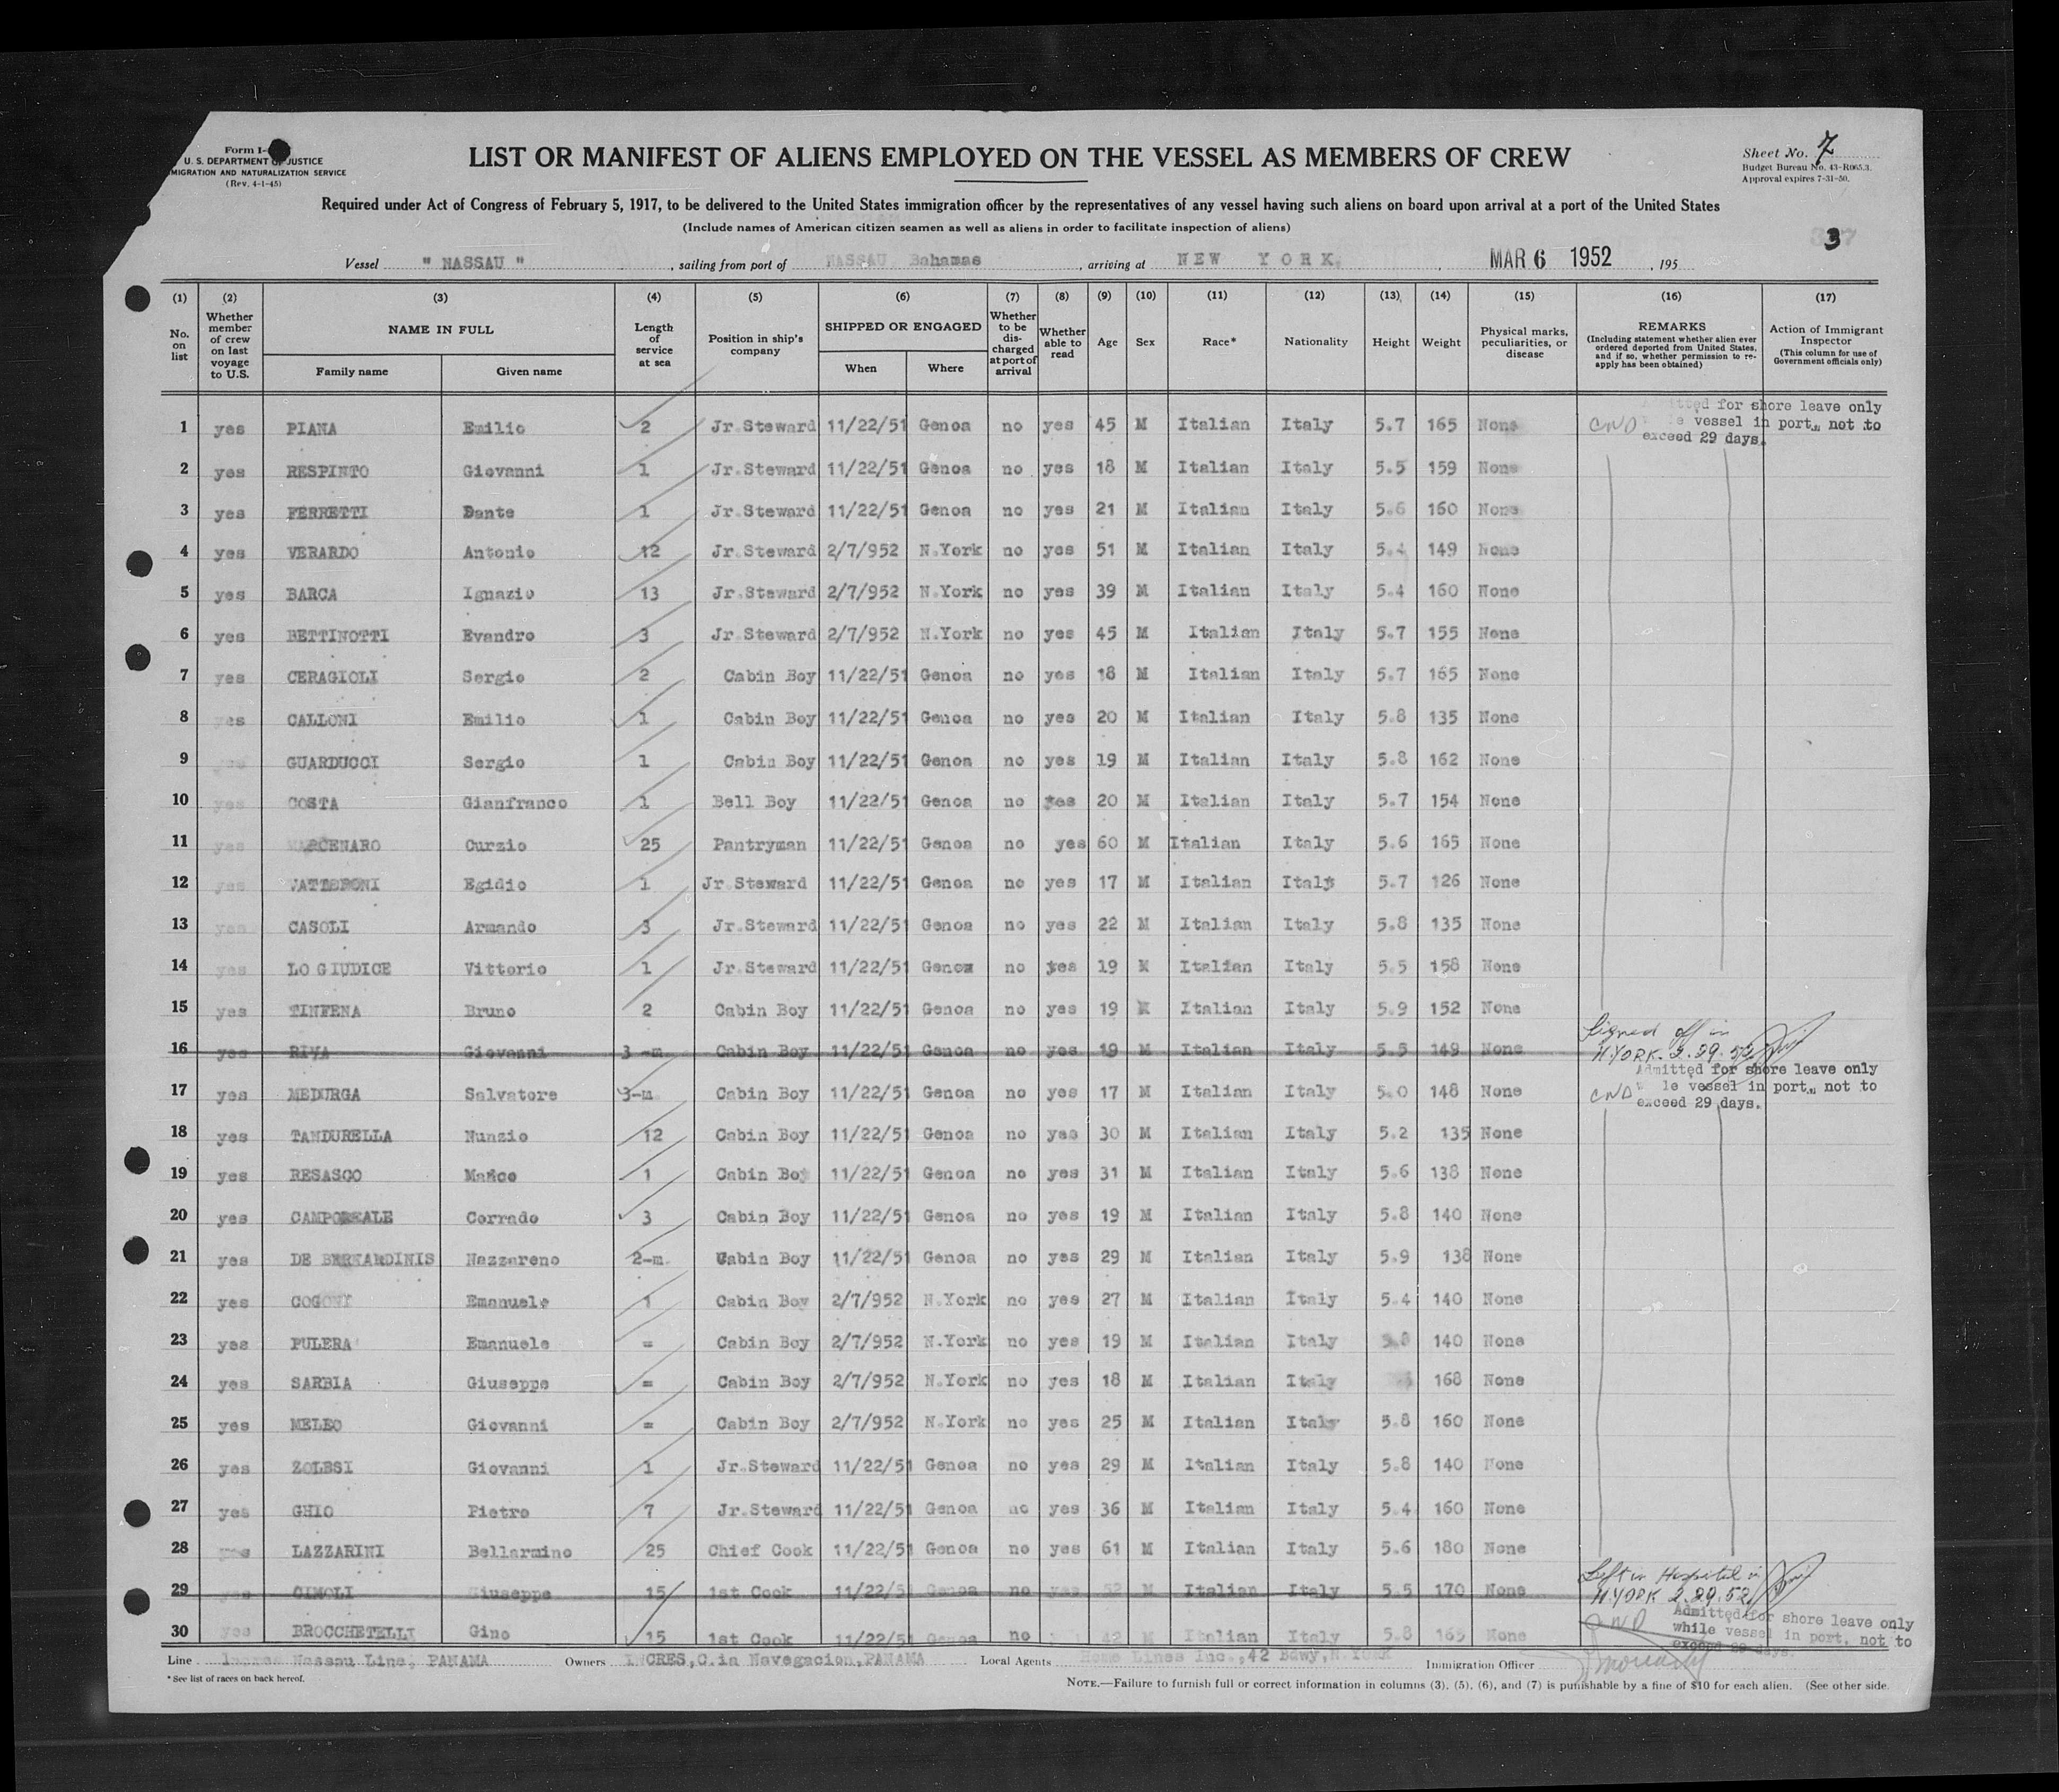 Form I-
U. S. DEPARTMENT OF JUSTICE
MIGRATION AND NATURALIZATION SERVICE
(Rev. 4-1-45)
LIST OR MANIFEST OF ALIENS EMPLOYED ON THE VESSEL AS MEMBERS OF CREW
Sheet No. 7
Budget Bureau No. 43-R065.3.
Approval expires 7-31-50.
Required under Act of Congress of February 5, 1917, to be delivered to the United States immigration officer by the representatives of any vessel having such aliens on board upon arrival at a port of the United States
(Include names of American citizen seamen as well as aliens in order to facilitate inspection of aliens)
3
Vessel " NASSAU " , sailing from port of NASSAU Bahamas , arriving at NEW YORK, MAR 6 1952 , 195
(1) (2) (3) (4) (5) (6) (7) (8) (9) (10) (11) (12) (13) (14) (15) (16) (17)
No. on list
Whether member of crew on last voyage to U.S.
NAME IN FULL
Family name Given name
Length of service at sea
Position in ship's company
SHIPPED OR ENGAGED
When Where
Whether to be discharged at port of arrival
Whether able to read
Age Sex Race* Nationality Height Weight
Physical marks, peculiarities, or disease
REMARKS
(Including statement whether alien ever ordered deported from United States, and if so, whether permission to reapply has been obtained)
Action of Immigrant Inspector
(This column for use of Government officials only)
1 yes PIANA Emilio 2 Jr.Steward 11/22/51 Genoa no yes 45 M Italian Italy 5.7 165 None CND Admitted for shore leave only
vessel in port, not to
exceed 29 days.
2 yes RESPINTO Giovanni 1 Jr.Steward 11/22/51 Genoa no yes 18 M Italian Italy 5.5 159 None
3 yes FERRETTI Dante 1 Jr.Steward 11/22/51 Genoa no yes 21 M Italian Italy 5.6 160 None
4 yes VERARDO Antonio 12 Jr.Steward 2/7/952 N.York no yes 51 M Italian Italy 5.4 149 None
5 yes BARCA Ignazio 13 Jr.Steward 2/7/952 N.York no yes 39 M Italian Italy 5.4 160 None
6 yes BETTINOTTI Evandro 3 Jr.Steward 2/7/952 N.York no yes 45 M Italian Italy 5.7 155 None
7 yes CERAGIOLI Sergio 2 Cabin Boy 11/22/51 Genoa no yes 18 M Italian Italy 5.7 165 None
8 yes CALLONI Emilio 1 Cabin Boy 11/22/51 Genoa no yes 20 M Italian Italy 5.8 135 None
9 GUARDUCCI Sergio 1 Cabin Boy 11/22/51 Genoa no yes 19 M Italian Italy 5.8 162 None
10 yes COSTA Gianfranco 1 Bell Boy 11/22/51 Genoa no yes 20 M Italian Italy 5.7 154 None
11 yes MARCENARO Curzio 25 Pantryman 11/22/51 Genoa no yes 60 M Italian Italy 5.6 165 None
12 yes VATTERONI Egidio 1 Jr.Steward 11/22/51 Genoa no yes 17 M Italian Italy 5.7 126 None
13 yes CASOLI Armando 3 Jr.Steward 11/22/51 Genoa no yes 22 M Italian Italy 5.8 135 None
14 yes LO GIUDICE Vittorio 1 Jr.Steward 11/22/51 Genoa no yes 19 M Italian Italy 5.5 158 None
15 yes TINFENA Bruno 2 Cabin Boy 11/22/51 Genoa no yes 19 M Italian Italy 5.9 152 None
Signed off in
16 yes RIVA Giovanni 3-m Cabin Boy 11/22/51 Genoa no yes 19 M Italian Italy 5.5 149 None N.YORK. 2.29.52
Admitted for shore leave only
17 yes MEDURGA Salvatore 3-m. Cabin Boy 11/22/51 Genoa no yes 17 M Italian Italy 5.0 148 None CND le vessel in port, not to
exceed 29 days.
18 yes TANDURELLA Nunzio 12 Cabin Boy 11/22/51 Genoa no yes 30 M Italian Italy 5.2 135 None
19 yes RESASCO Marco 1 Cabin Boy 11/22/51 Genoa no yes 31 M Italian Italy 5.6 138 None
20 yes CAMPOREALE Corrado 3 Cabin Boy 11/22/51 Genoa no yes 19 M Italian Italy 5.8 140 None
21 yes DE BERNARDINIS Nazzareno 2-m. Cabin Boy 11/22/51 Genoa no yes 29 M Italian Italy 5.9 138 None
22 yes Emanuele 1 Cabin Boy 2/7/952 N.York no yes 27 M Italian Italy 5.4 140 None
23 yes PULERA Emanuele = Cabin Boy 2/7/952 N.York no yes 19 M Italian Italy 5.8 140 None
24 yes SARBIA Giuseppe = Cabin Boy 2/7/952 N.York no yes 18 M Italian Italy 168 None
25 yes MELEO Giovanni = Cabin Boy 2/7/952 N.York no yes 25 M Italian Italy 5.8 160 None
26 yes ZOLESI Giovanni 1 Jr.Steward 11/22/51 Genoa no yes 29 M Italian Italy 5.8 140 None
27 yes GHIO Pietro 7 Jr.Steward 11/22/51 Genoa no yes 36 M Italian Italy 5.4 160 None
28 yes LAZZARINI Bellarmino 25 Chief Cook 11/22/51 Genoa no yes 61 M Italian Italy 5.6 180 None
Left in Hospital in
29 yes CIMOLI Giuseppe 15 1st Cook 11/22/51 Genoa no yes 52 M Italian Italy 5.5 170 None N.YORK 2.29.52
30 yes BROCCHETELLI Gino 15 1st Cook 11/22/51 Genoa no 42 M Italian Italy 5.8 165 None CND Admitted for shore leave only
while vessel in port, not to
exceed 29 days.
Line Incres Nassau Line, PANAMA Owners INCRES,C.ia Navegacion,PANAMA Local Agents Home Lines Inc.,42 Bdwy,N.YORK Immigration Officer
* See list of races on back hereof.
NOTE.—Failure to furnish full or correct information in columns (3), (5), (6), and (7) is punishable by a fine of $10 for each alien. (See other side.